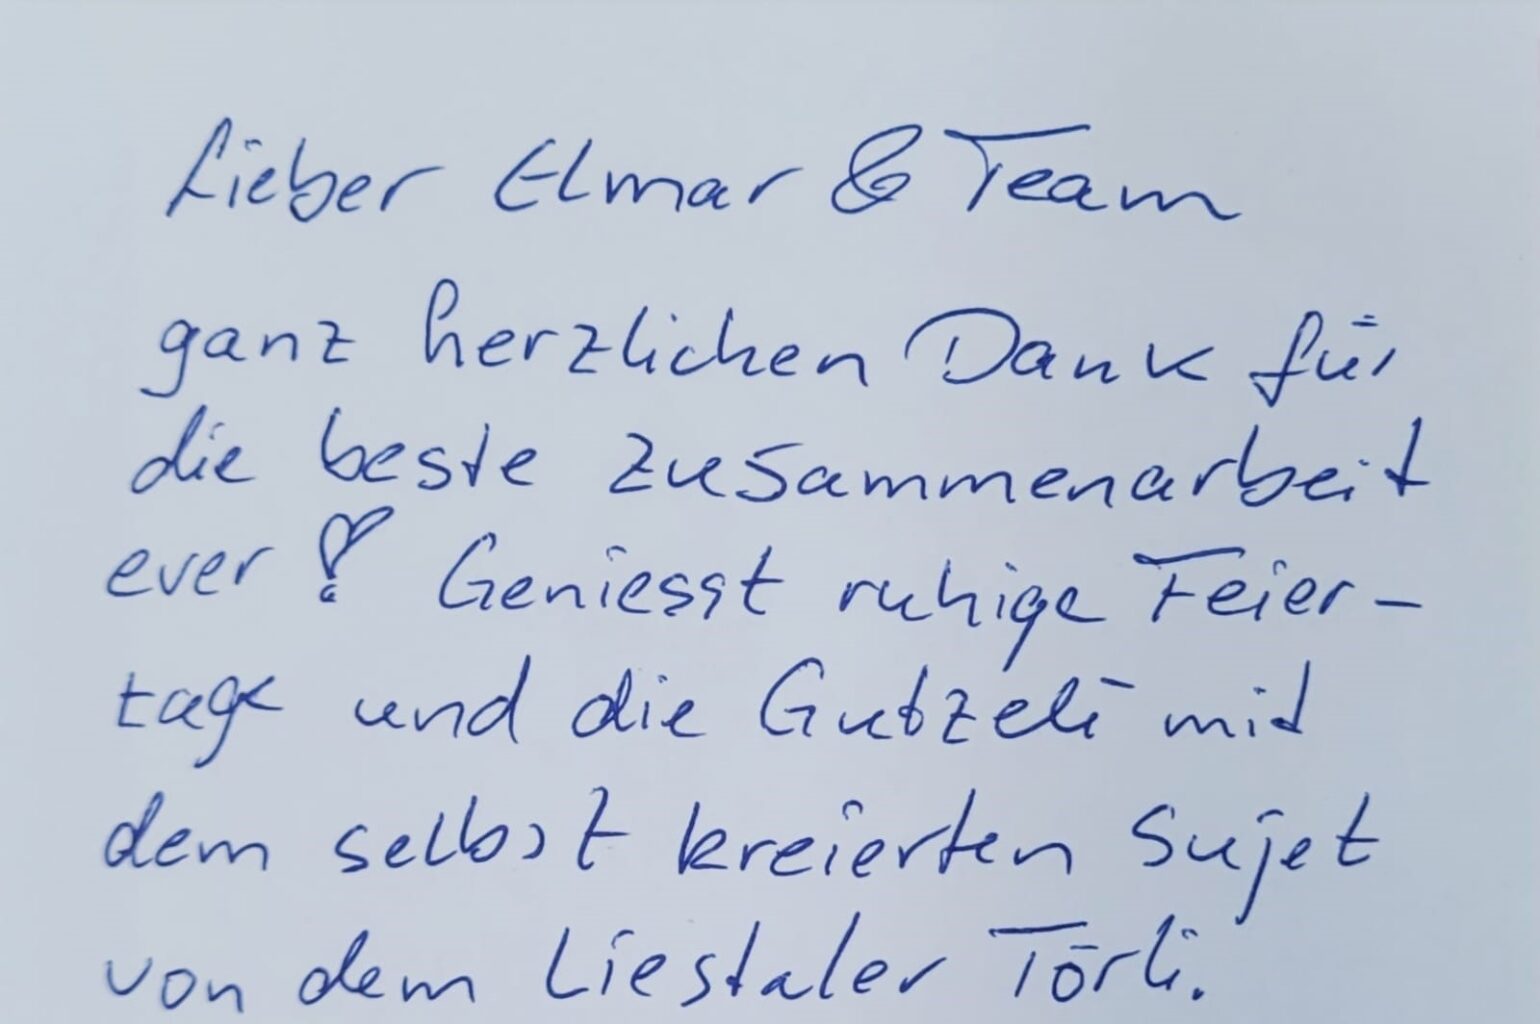 Lieber Elmar & Team
ganz herzlichen Dank für
die beste Zusammenarbeit
ever! Geniesst ruhige Feier-
tage und die Gutzeli mit
dem selbst kreierten Sujet
von dem Liestaler Törli.